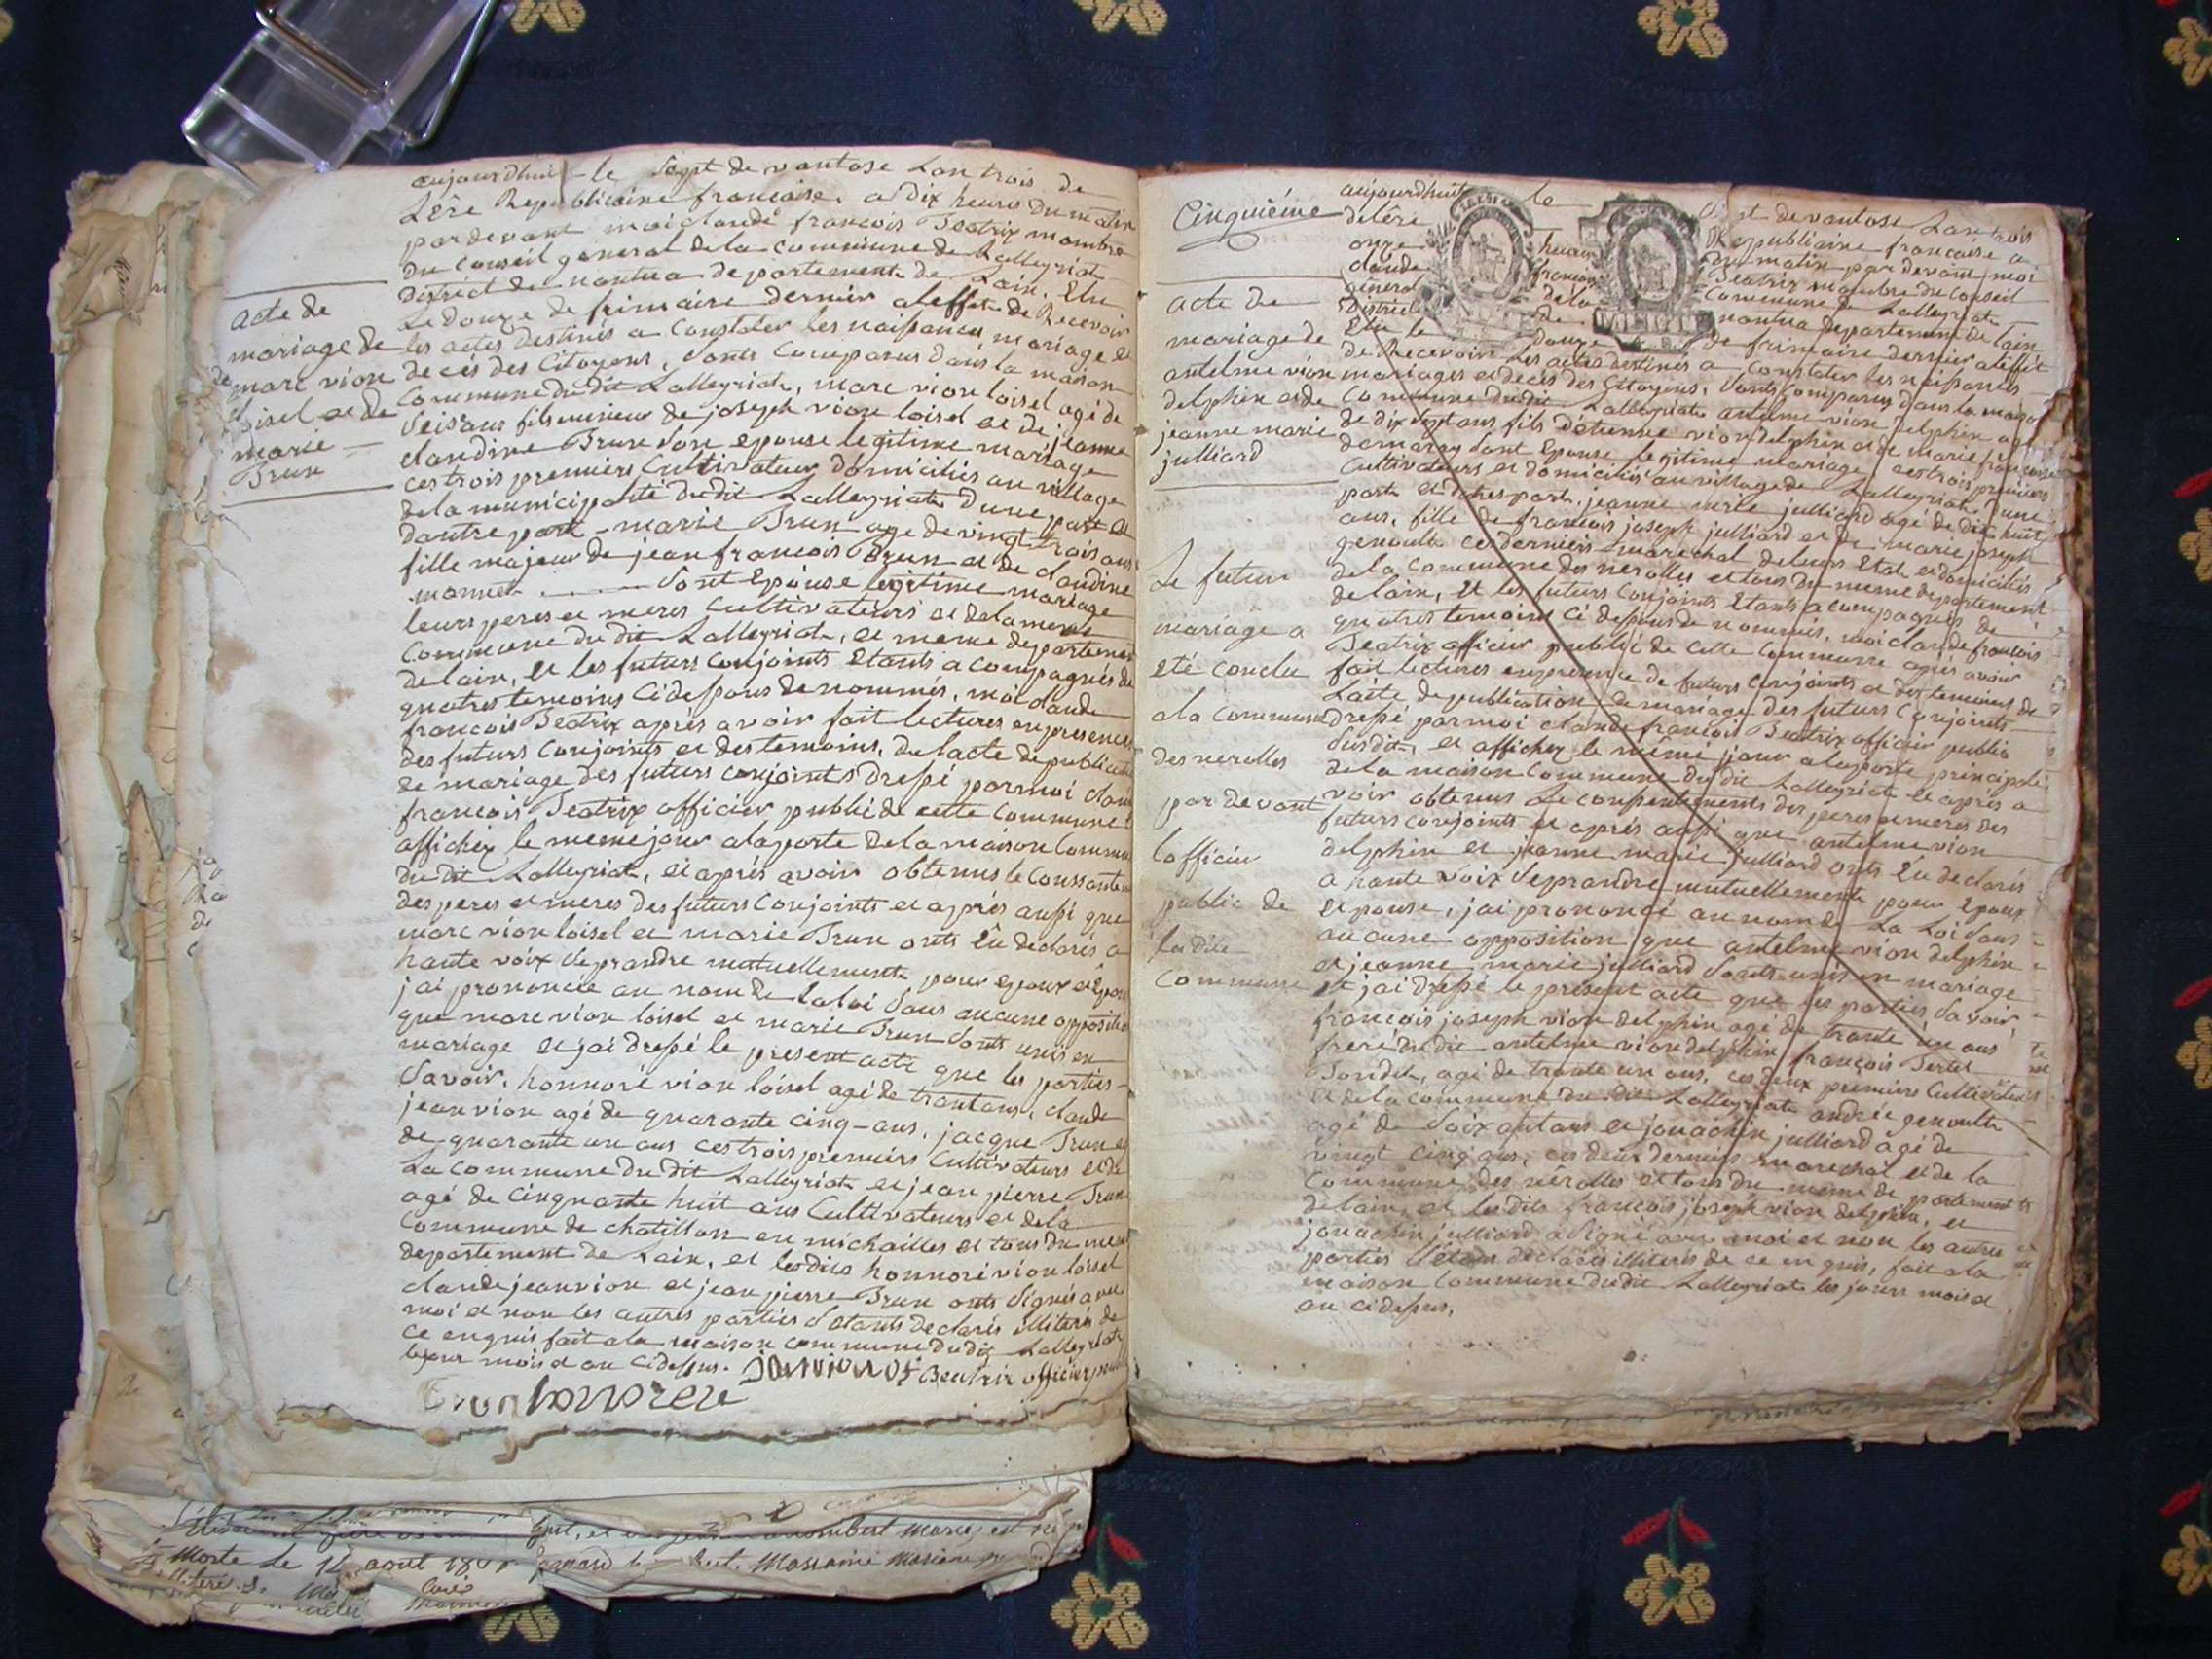 aujourdhui le Sept de vantose Lan trois de
L'ère Republicaine francoise. a dix heures du matin
par devant moi claude francois Beatrix mambre
du Conseil general de la commune de Lalleyriat
District de nantua departement de Lain. Elu
Le douze de frimaire dernier a leffet de Recevoir
les actes destinés a Constater les naissances mariage et
decés des Citoyens, Sonts Comparus dans la maison
Commune du dit Lalleyriat, marc vion loisel agé de
fils mineur de joseph vion loisel et de jeanne
claudine Brun Son epouse legitime mariage
ces trois premiers Cultivateurs domiciliés au village
de la municipalité du dit Lalleyriat d'une part et
dautre part marie Brun age de vingt trois ans
fille majeur de jean francois Brun et de claudine
monnet Sont Epouse legitime mariage
leurs peres et meres Cultivateurs et de la meme
Commune du dit Lalleyriat, et meme departement
de lain, et les futurs conjoints Etants acompagnés de
quatres temoins Ci dessous denommés, moi claude
francois Beatrix après avoir fait lectures en presence
des futurs Conjoints et des temoins, du lacte de publication
de mariage des futurs conjoints dressé par moi claude
francois Beatrix officier public de cette Commune
affichez le meme jour a la porte de la maison Commune
du dit Lalleyriat, et aprés avoir obtenus le Conssantement
des peres et meres des futurs Conjoints et aprés aussi que
marc vion loisel et marie Brun onts Eu declarés a
haute voix Se prandre mutuellement pour epoux et Epouse
j'ai prononcée au nom de la loi Sans aucune opposition
que marc vion loisel et marie Brun Sonts unis en
mariage et j'ai dressé le present acte que les parties
Savoir, honnoré vion loisel agé de trantans, claude
jean vion agé de quarante cinq ans, jacque Brun
de quarante un ans ces trois premiers Cultivateurs et de
La commune du dit Lalleyriat et jean pierre Brun
agé de Cinquante huit ans Cultivateurs et de la
Commune de chatillon en michailles et tous du meme
departement de Lain, et lesdits honnoré vion loisel
claude jean vion et jean pierre Brun onts Signés avec
moi et non les autres parties Setants declarés illiteris de
ce enquis fait a la maison commune du dit Lalleyriat
les jour mois et an cidessus. Beatrix officier public
acte de
mariage de
marc vion
loisel et de
marie
Brun
Cinquiéme
acte de
mariage de
antelme vion
delphin et de
jeanne marie
julliard
Le futur
mariage a
eté conclu
a la commune
des nerolles
par devant
lofficier
public de
ladite
Commune
aujourdhuit le Sept de vantose Lan trois
de l'ère Republicaine francoise a
onze heures du matin par devant moi
claude francois Beatrix mambre du Conseil
general de la Commune de Lalleyriat
District de nantua departement de lain
Elu le douze de frimaire dernier a leffet
de Recevoir les actes destinés a Constater les naissances
mariages et decés des Citoyens, Sonts Comparus dans la maison
Commune du dit Lalleyriat antelme vion delphin agé
de dix Sept ans fils d'étienne vion delphin et de marie francoise
demarry Sont Epouse legitime mariage ces trois premiers
Cultivateurs et domiciliés au village de Lalleyriat d'une
part et dautres part, jeanne marie julliard agé de dix huit
ans, fille de francois joseph julliard et de marie joseph
genoult ces derniers marechal de leurs Etat et domiciliés
de la Commune des nerolles et tous du meme departement
de lain, et les futurs Conjoints Etants acompagnés de
quatres temoins Ci dessous denommés, moi claude francois
Beatrix officier public de cette Commune aprés avoir
fait lectures en presence de futurs Conjoints et des temoins de
Lacte de publication de mariage des futurs Conjoints
dressé par moi claude francois Beatrix officier public
Susdit, et affichez le même jour a la porte principale
de la maison Commune du dit Lalleyriat et aprés a
voir obtenus Le Conssentements des peres et meres des
futurs conjoints et aprés aussi que antelme vion
delphin et jeanne marie julliard onts Eu declarés
a haute voix Se prandre mutuellement pour Epoux
et Epouse, j'ai prononcé au nom de La Loi Sans
aucune opposition que antelme vion delphin
et jeanne marie julliard Sonts unis en mariage
et j'ai dressé le présent acte que les parties Savoir,
francois joseph vion delphin agé de trante un ans
frere du dit antelme vion delphin francois
agé de trante un ans, ces deux premiers Cultivateurs
et de la commune du dit Lalleyriat andrée genoulte
agé de Soixantans et jouachin julliard agé de
vingt cinq ans, ces deux derniers marechal et de la
Commune des nérolles et tous du meme departement
de lain, et lesdits francois joseph vion delphin, et
jouachin julliard a Signé avec moi et non les autres
parties Setans declarés illiteris de ce enquis, fait a la
maison Commune du dit Lalleyriat les jours mois et
an cidessus.
Morte Le 14 aout